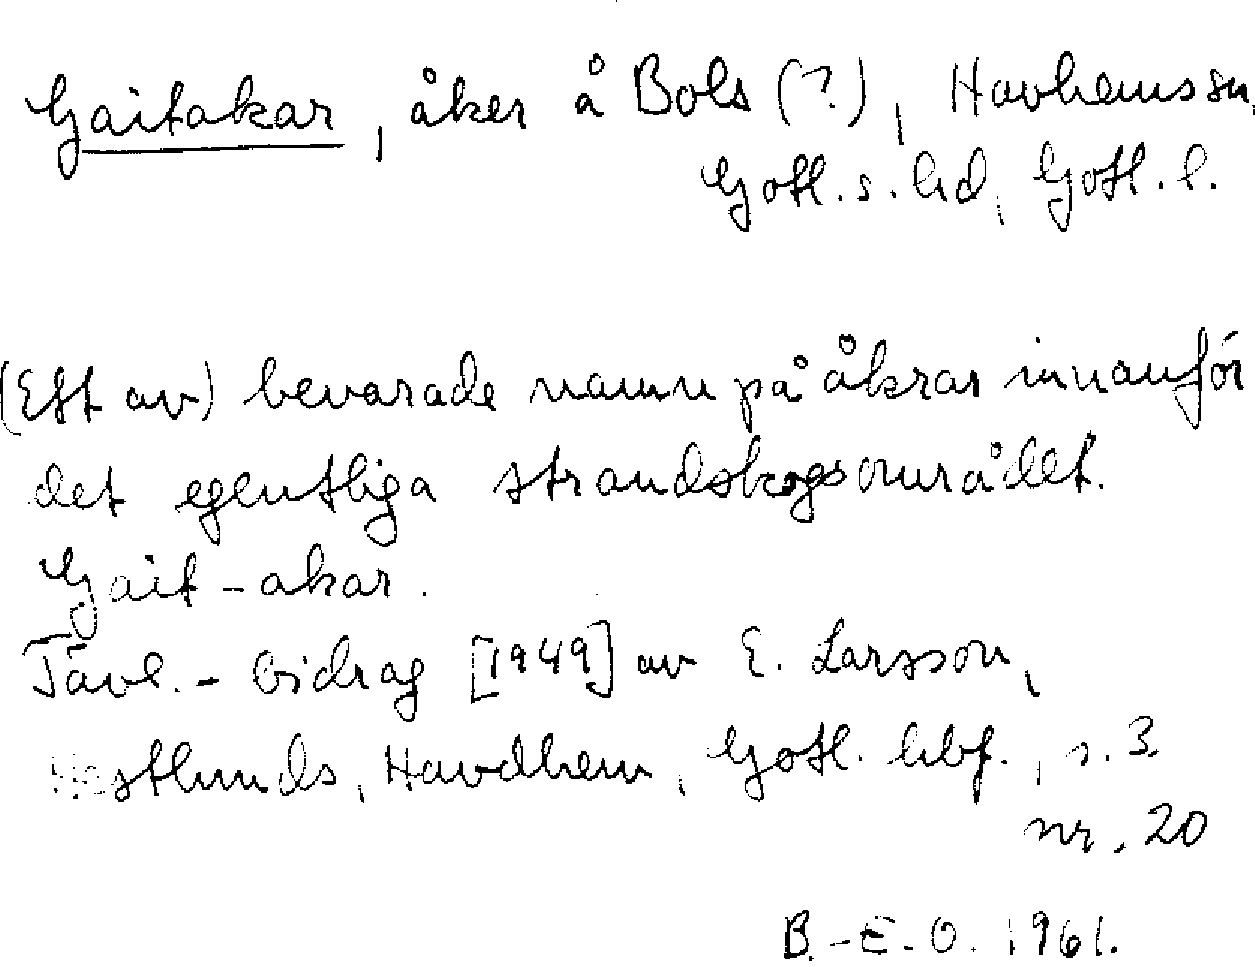 Gaitakar, åker å Bols (?), Havhems sn,
Gotl. s. hd, Gotl. l.
(Ett av) bevarade namn på åkrar innanför
det egentliga strandskogsområdet.
Gait-akar.
Tävl.-bidrag [1949] av E. Larsson,
Hastlunds, Havdhem, Gotl. hbf., s. 3
nr. 20
B.-E.O. 1961.